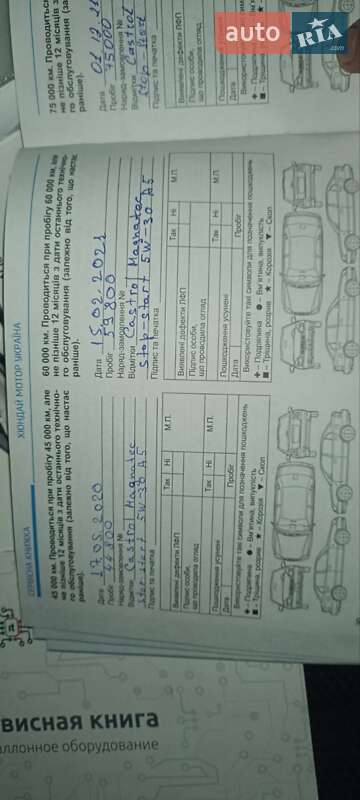 СЕРВІСНА КНИЖКА
ХЮНДАЙ МОТОР УКРАЇНА
45 000 км. Проводиться при пробігу 45 000 км, але
не пізніше 12 місяців з дати останнього технічно-
го обслуговування (залежно від того, що настає
раніше).
Дата 17.05.2020
Пробіг
Наряд-замовлення №
Відмітки Castrol Magnatec
stop-start 5W-30 A5
Підпис та печатка
М.П.
Так Ні
Виявлені дефекти ЛФП
Підпис особи,
що проводила огляд
Пошкодження усунені
Так Ні М.П.
Дата Пробіг
Використовуйте такі символи для позначення пошкоджень
✚ – Подряпина ● – Вм'ятина, випуклість
■ – Тріщина, розрив ★ – Корозія ▼ – Скол
60 000 км. Проводиться при пробігу 60 000 км, але
не пізніше 12 місяців з дати останнього технічно-
го обслуговування (залежно від того, що настає
раніше).
Дата 15.02.2021
Пробіг 59800
Наряд-замовлення №
Відмітки Castrol Magnatec
stop-start 5W-30 A5
Підпис та печатка
Так Ні М.П.
Виявлені дефекти ЛФП
Підпис особи,
що проводила огляд
Так Ні М.П.
Пошкодження усунені
Дата Пробіг
Використовуйте такі символи для позначення пошкоджень
✚ – Подряпина ● – Вм'ятина, випуклість
■ – Тріщина, розрив ★ – Корозія ▼ – Скол
75 000 км. Проводиться
не пізніше 12 місяців з
го обслуговування (за
раніше).
Дата
Пробіг 75000
Наряд-замовлення №
Відмітки Castrol
stop-start
Підпис та печатка
Виявлені дефекти ЛФП
Підпис особи,
що проводила огляд
Пошкодження
Дата
Використовуйте
✚ – Подряпина
■ – Тріщина
висная книга
аллонное оборудование
auto
RIA
.com